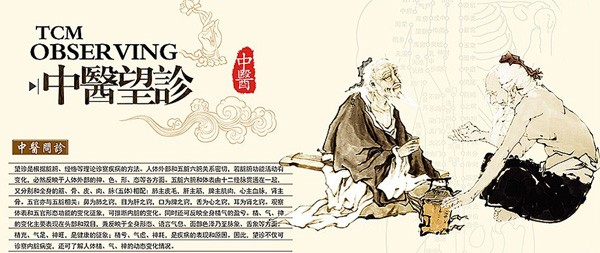 TCM
OBSERVING
中醫望診
中醫
中醫問診
望诊是根据脏腑、经络等理论诊察疾病的方法。人体外部和五脏六腑关系密切，若脏腑功能活动有
变化，必然反映于人体外部的神、色、形、态等各方面。五脏六腑和体表由十二经脉贯通在一起，
又分别和全身的筋、骨、皮、肉、脉(五体)相配：肺主皮毛，肝主筋，脾主肌肉，心主血脉，肾主
骨。五官亦与五脏相关：鼻为肺之窍，目为肝之窍，口为脾之窍，舌为心之窍，耳为肾之窍。观察
体表和五官形态功能的变化征象，可推断内脏的变化。同时还可反映全身精气的盈亏。精、气、神
的变化主要表现在头部和双目，兼反映于全身形态，语言气息，面部色泽乃至脉象、舌象等方面。
精充、气足、神旺，是健康的征象；精亏、气虚、神耗，是疾病的表现和原因。因此，望诊不仅可
诊察内脏病变，还可了解人体精、气、神的动态变化情况。